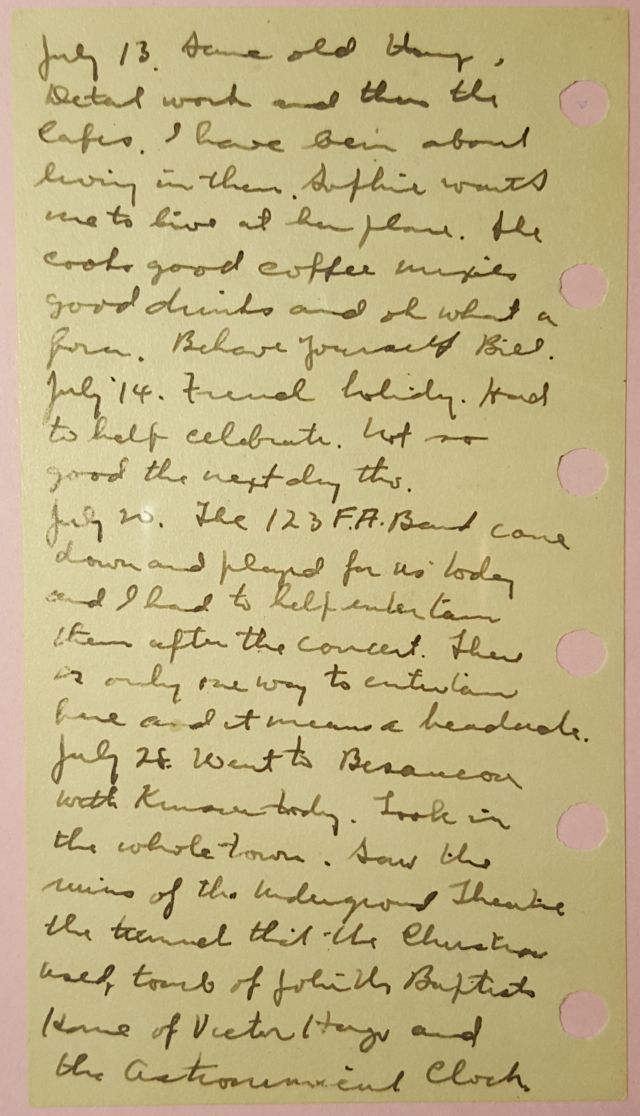 July 13. Same old thing,
Detail work and then the
Cafes. I have been about
living in them. Sophie wants
me to live at her place. She
cooks good coffee mixies
good drinks and oh what a
form. Behave Yourself Bill.
July 14. French holidy. Had
to help celebrate. Not so
good the next day tho.
July 20. The 123 F.A. Band came
down and played for us today
and I had to help entertain
them after the concert. There
is only one way to entertain
here and it means a headache.
July 28. Went to Besancon
with today. Took in
the whole town. Saw the
ruins of the Underground Theatre
the tunnel that the Christian
used, tomb of John the Baptists
Home of Victor Hugo and
the Astronomical Clock.